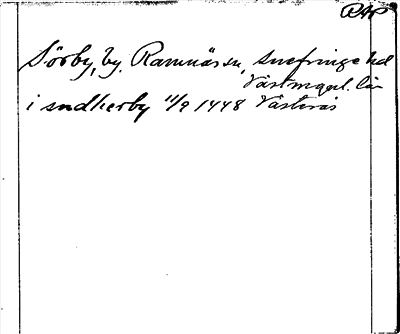 RAP
Sörby, by. Ramnäs sn, Snefringe hd
Västmanl. län
i sudherby 11/9 1448 Västerås